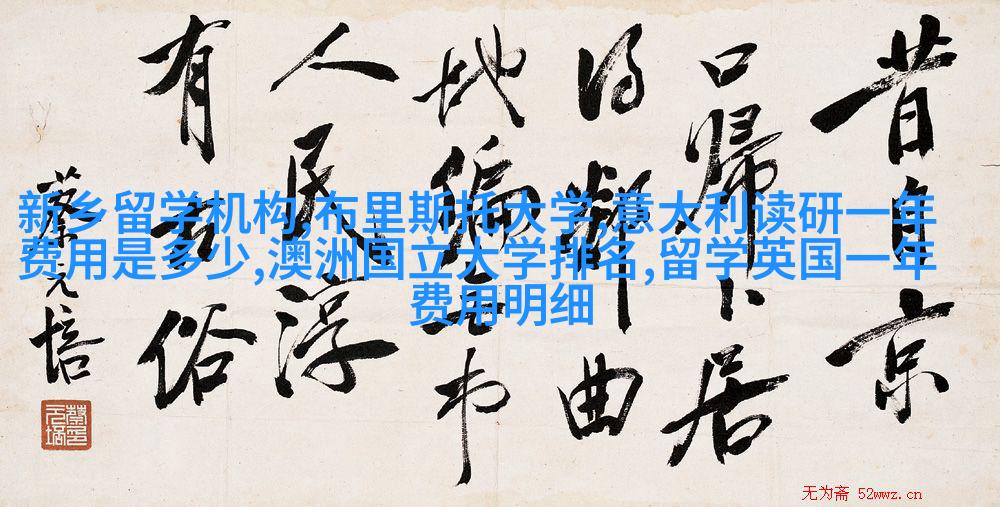 昔自京
口歸卜居
得鄰曲
地偏無市
人民淳
有古俗
蔡元培
新乡留学机构,布里斯托大学,意大利读研一年
费用是多少,澳洲国立大学排名,留学英国一年
费用明细
无为斋 52wwz.cn